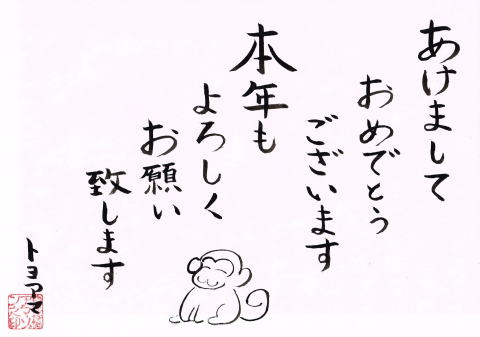 あけまして
おめでとう
ございます
本年も
よろしく
お願い
致します
トヨアマ